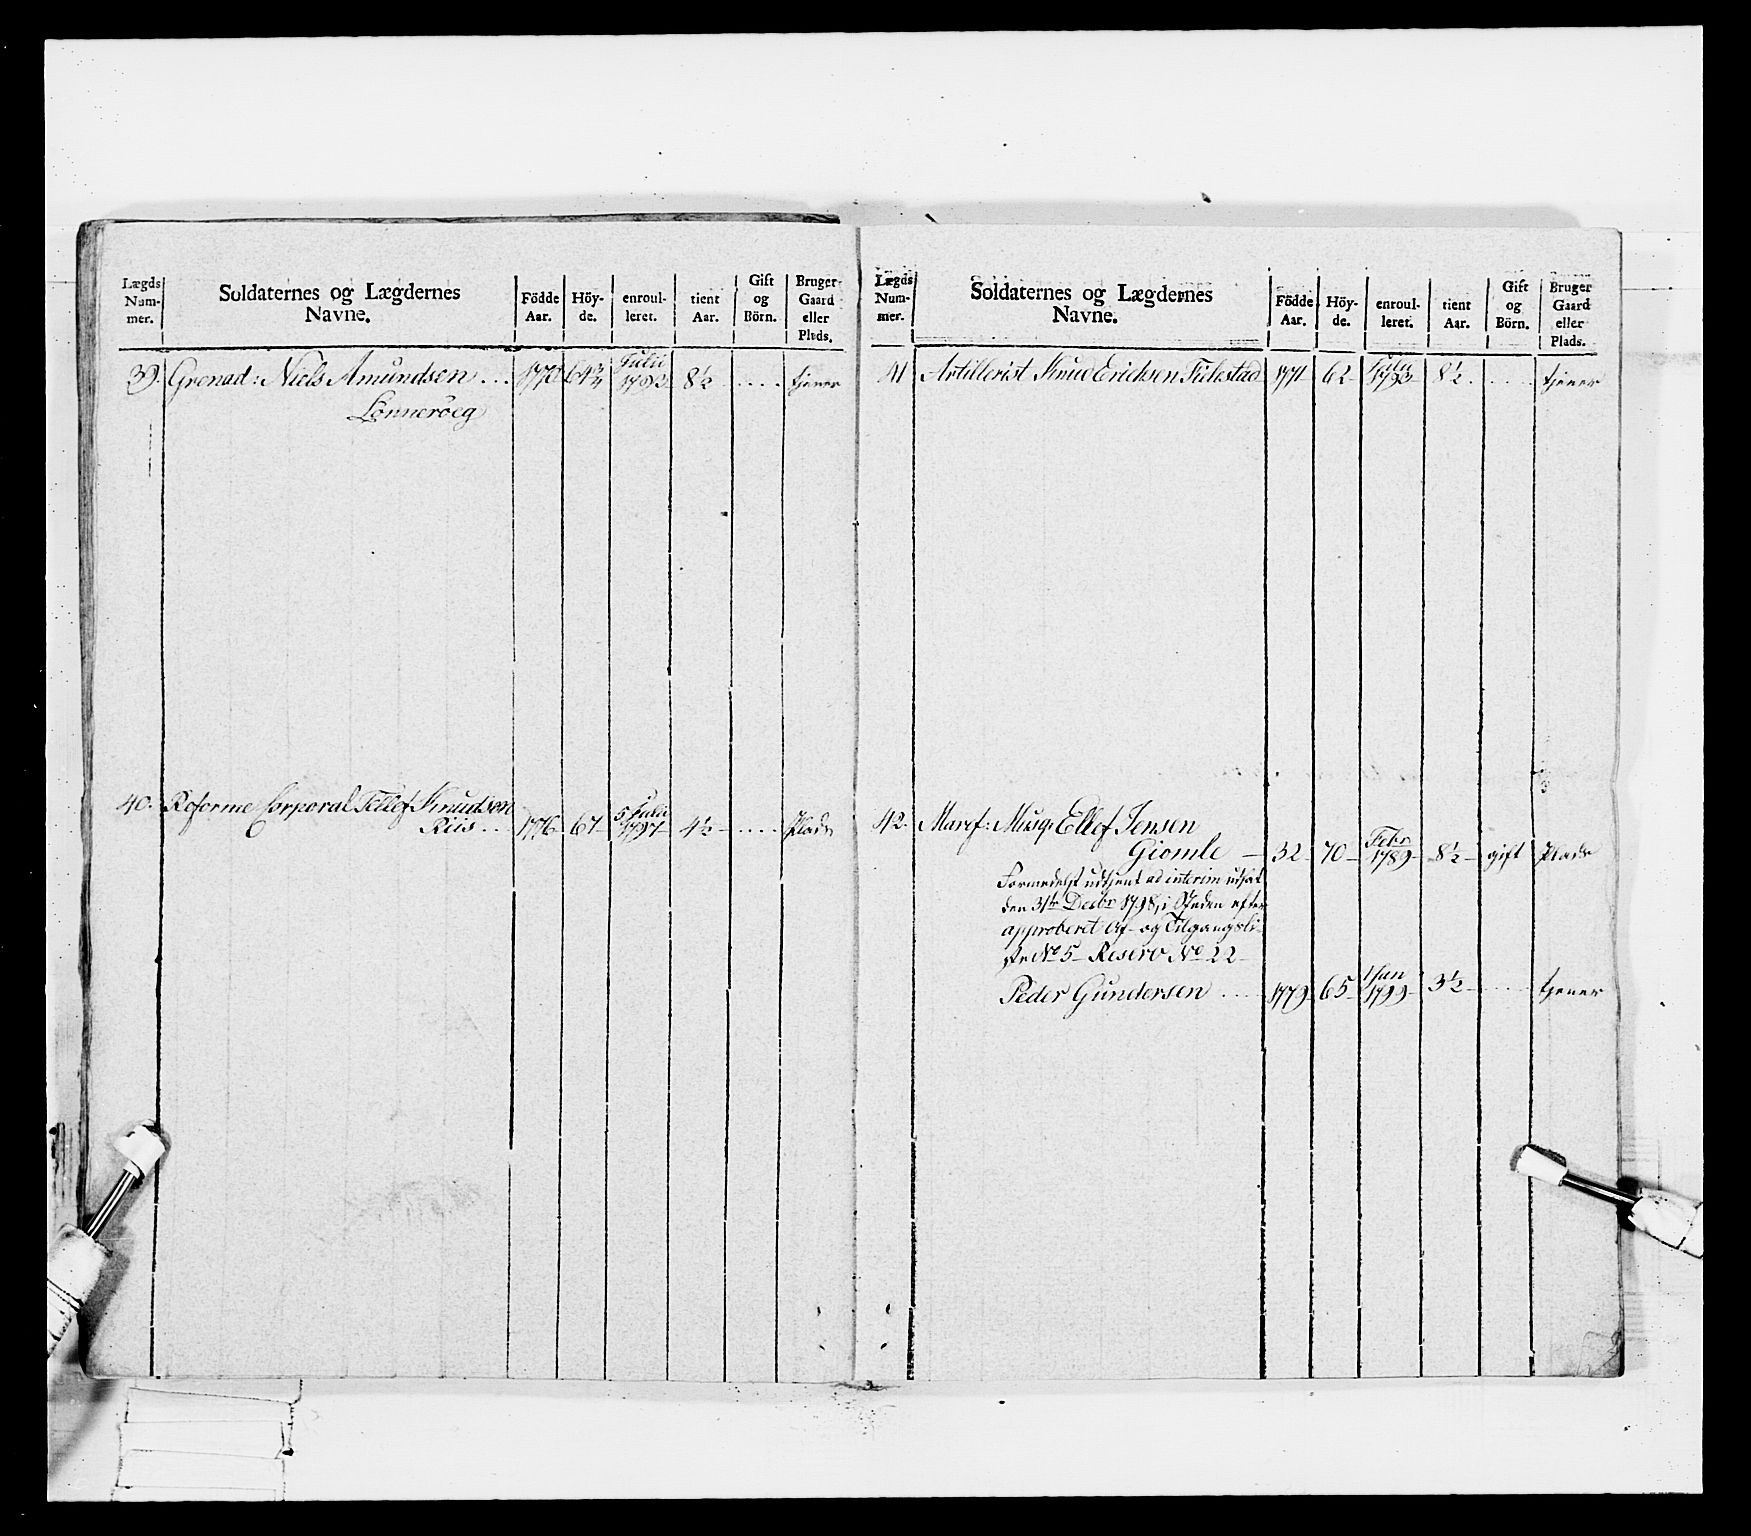 Lægds Num- mer.
Soldaternes og Lægdernes Navne.
Födde Aar.
Höy- de.
enroul- leret.
tient Aar.
Gift og Börn.
Bruger Gaard eller Plads.
39. Grenad: Niels Amundsen ... 1770 64¾ Julii 1792 8½ .... tjener
Lönneröeg
40. Reforme Corporal Tellef Knudsen
Riis ... 1776 67 5 Julii 1797 4½ .... Plads
Lægds Num- mer.
Soldaternes og Lægdernes Navne.
Födde Aar.
Höy- de.
enroul- leret.
tient Aar.
Gift og Börn.
Bruger Gaard eller Plads.
41 Artillerist Knud Ericksen 1771 62 1793 8½ .... tjener
42. Musq: Ellef Jensen
Giomle 32 70 Febr 1789 8½ gift Plads
Formedelst udtjent ad interim udsat
den 31te Decbr 1798, i Steden efter
approberet Af- og Tilgangsli-
ste No 5 Reserv No 22
Peder Gundersen .... 1779 65 1 Jan 1799 3½ .... tjener